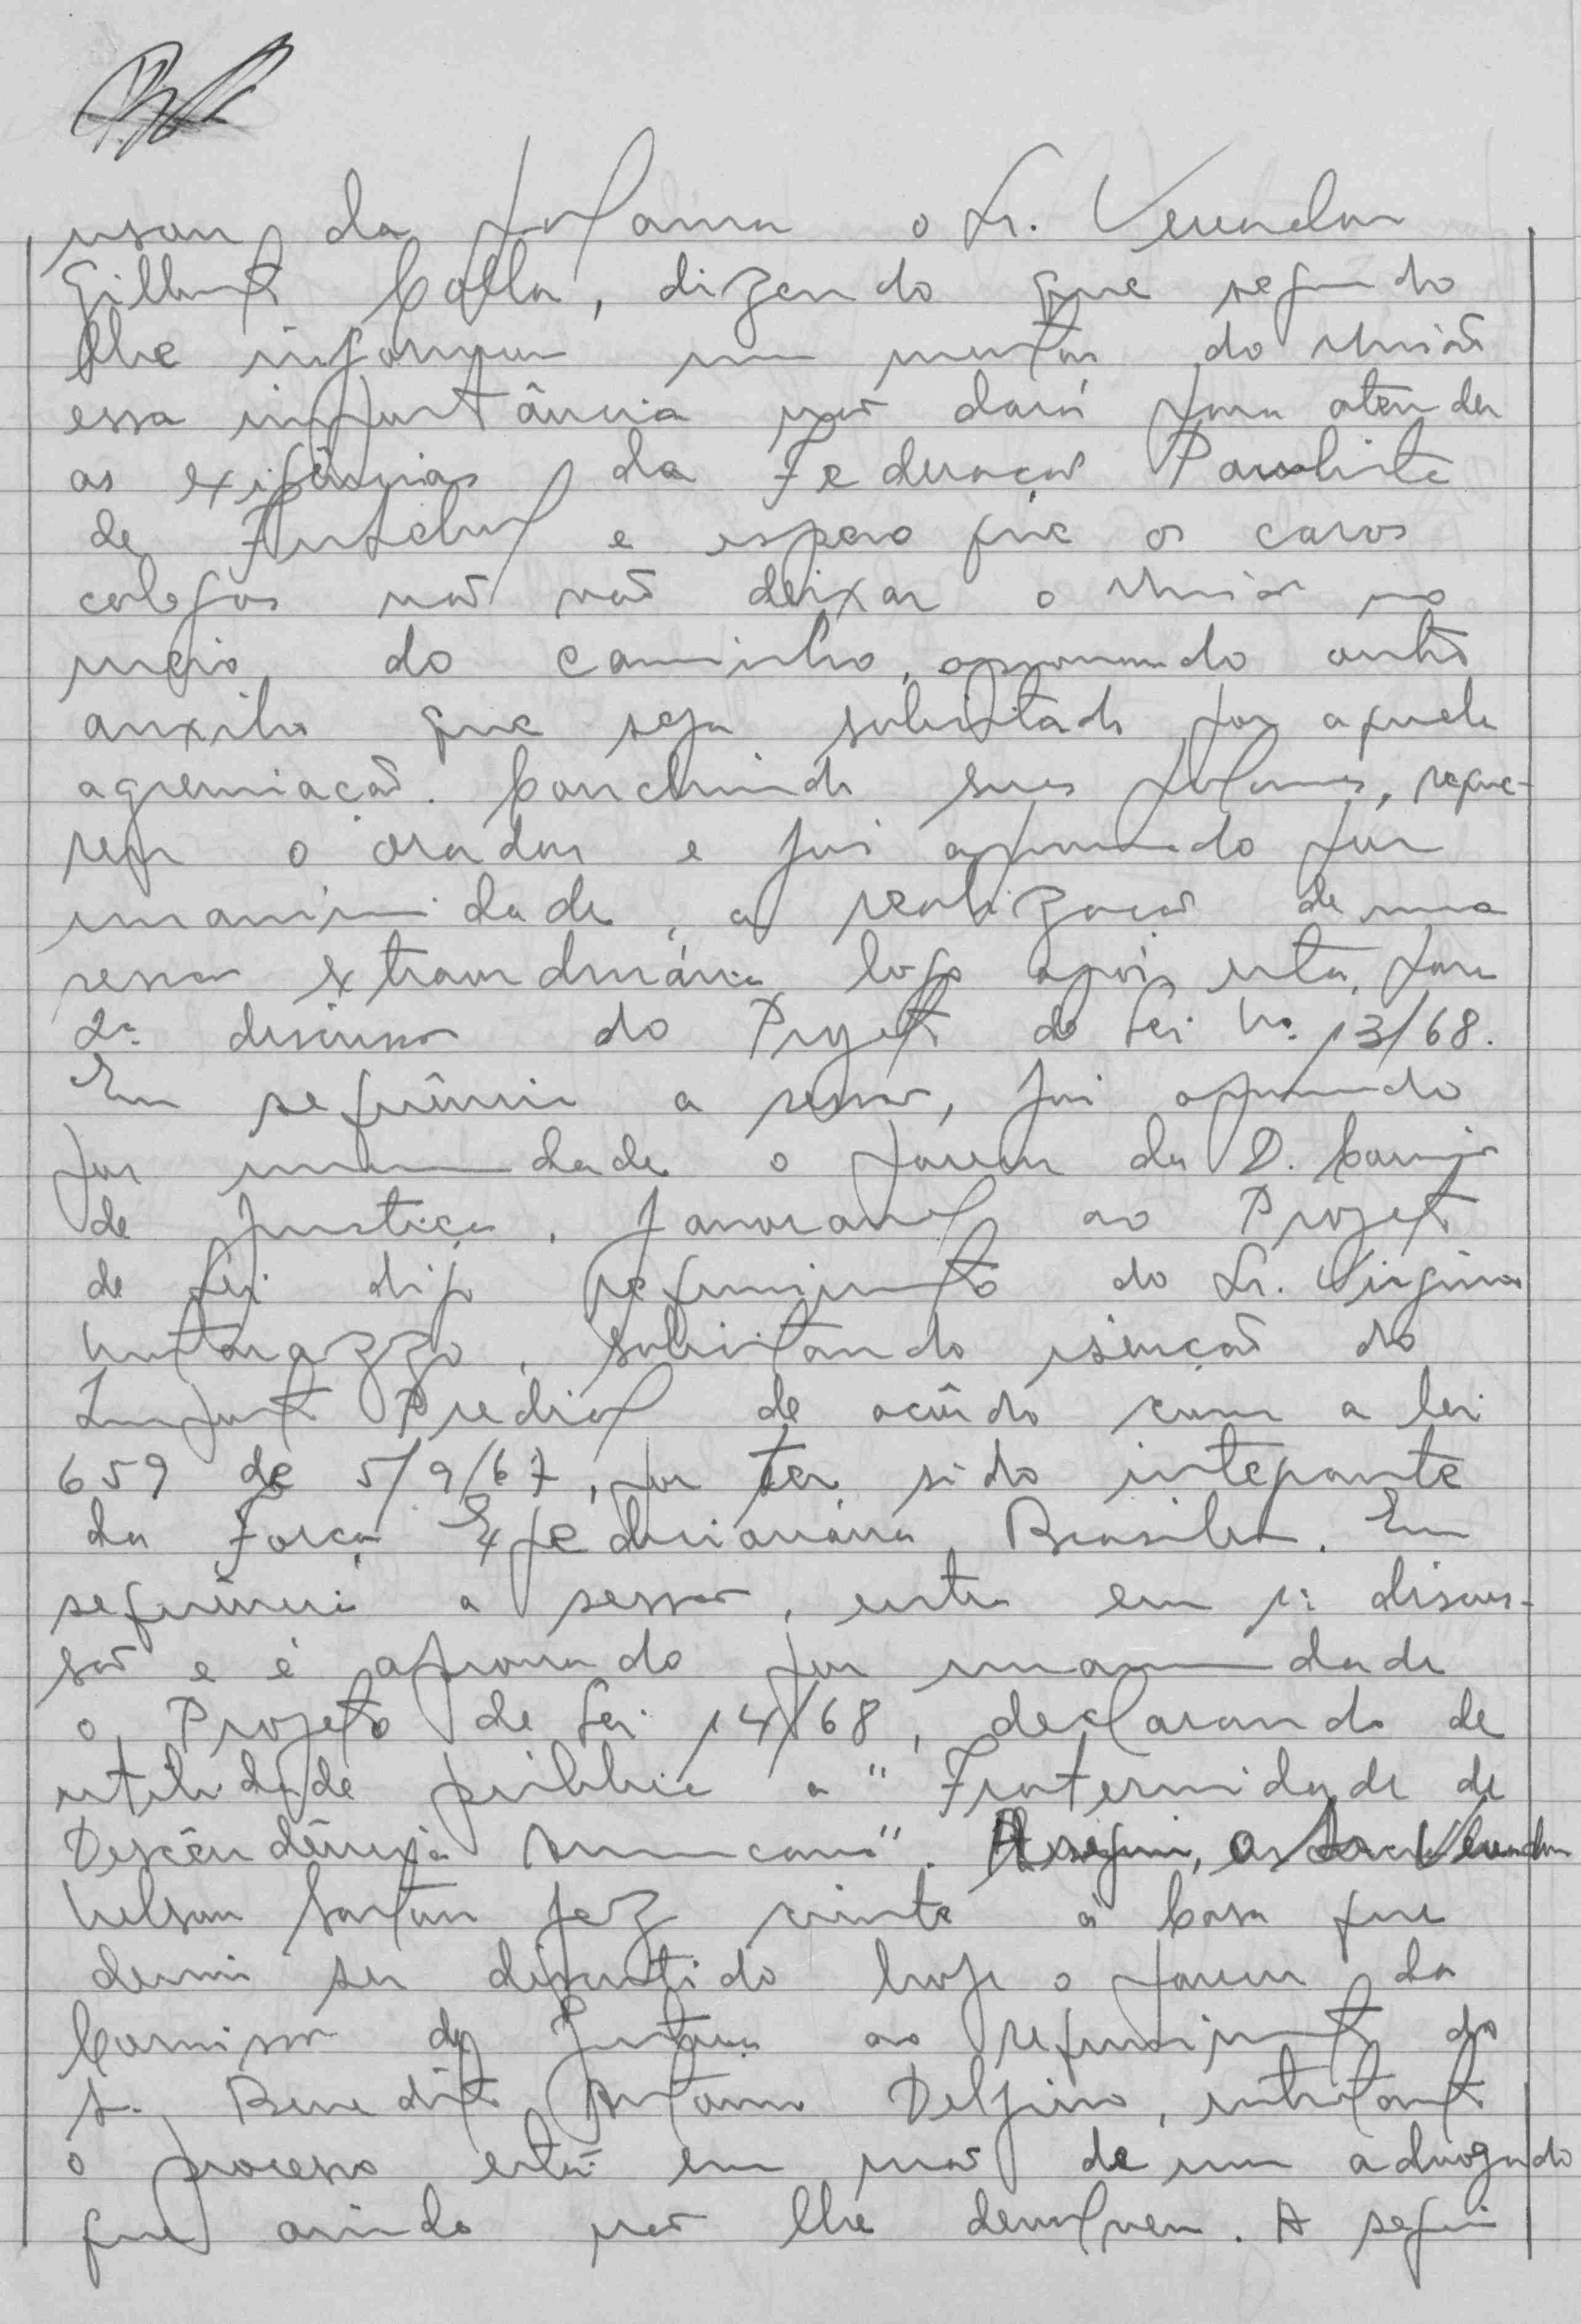 usou da palavra o Sr. Vereador
Gilberto Colla, dizendo que segundo
lhe informou um mentor do União
essa importância não dará para atender
as exigências da Federação Paulista
de Futebol e espero que os caros
colegas não vão deixar o União no
meio do caminho, aprovando outro
auxilio que seja solicitado por aquela
agremiação. Concluindo suas palavras, reque-
reu o orador e foi aprovado por
unanimidade, a realização de uma
sessão extraordinária logo após esta, para
2ª discussão do Projeto de Lei Nº 13/68.
Em sequência a sessão, foi aprovado
por unanimidade o parecer da D. Comissão
de Justiça, favoravel ao Projeto
de Lei digo requerimento do Sr. Virginio
Matarazzo, solicitando isenção do
Imposto Predial de acôrdo com a lei
659 de 5/9/67, por ter sido integrante
da Força Expedicionária Brasileira. Em
sequência a sessão, entra em 1ª discus-
são e é aprovado por unanimidade
o Projeto de Lei 14/68, declarando de
utilidade pública a "Fraternidade de
Descêndência Americana". A seguir, o Vereador
Nelson fez ciente à Casa que
devia ser discutido hoje o parecer da
Comissão de Justiça ao requerimento do
Sr. Benedito Antonio Delfino, entretanto
o processo está em mãos de um advogado
que ainda não lhe devolveu. A seguir